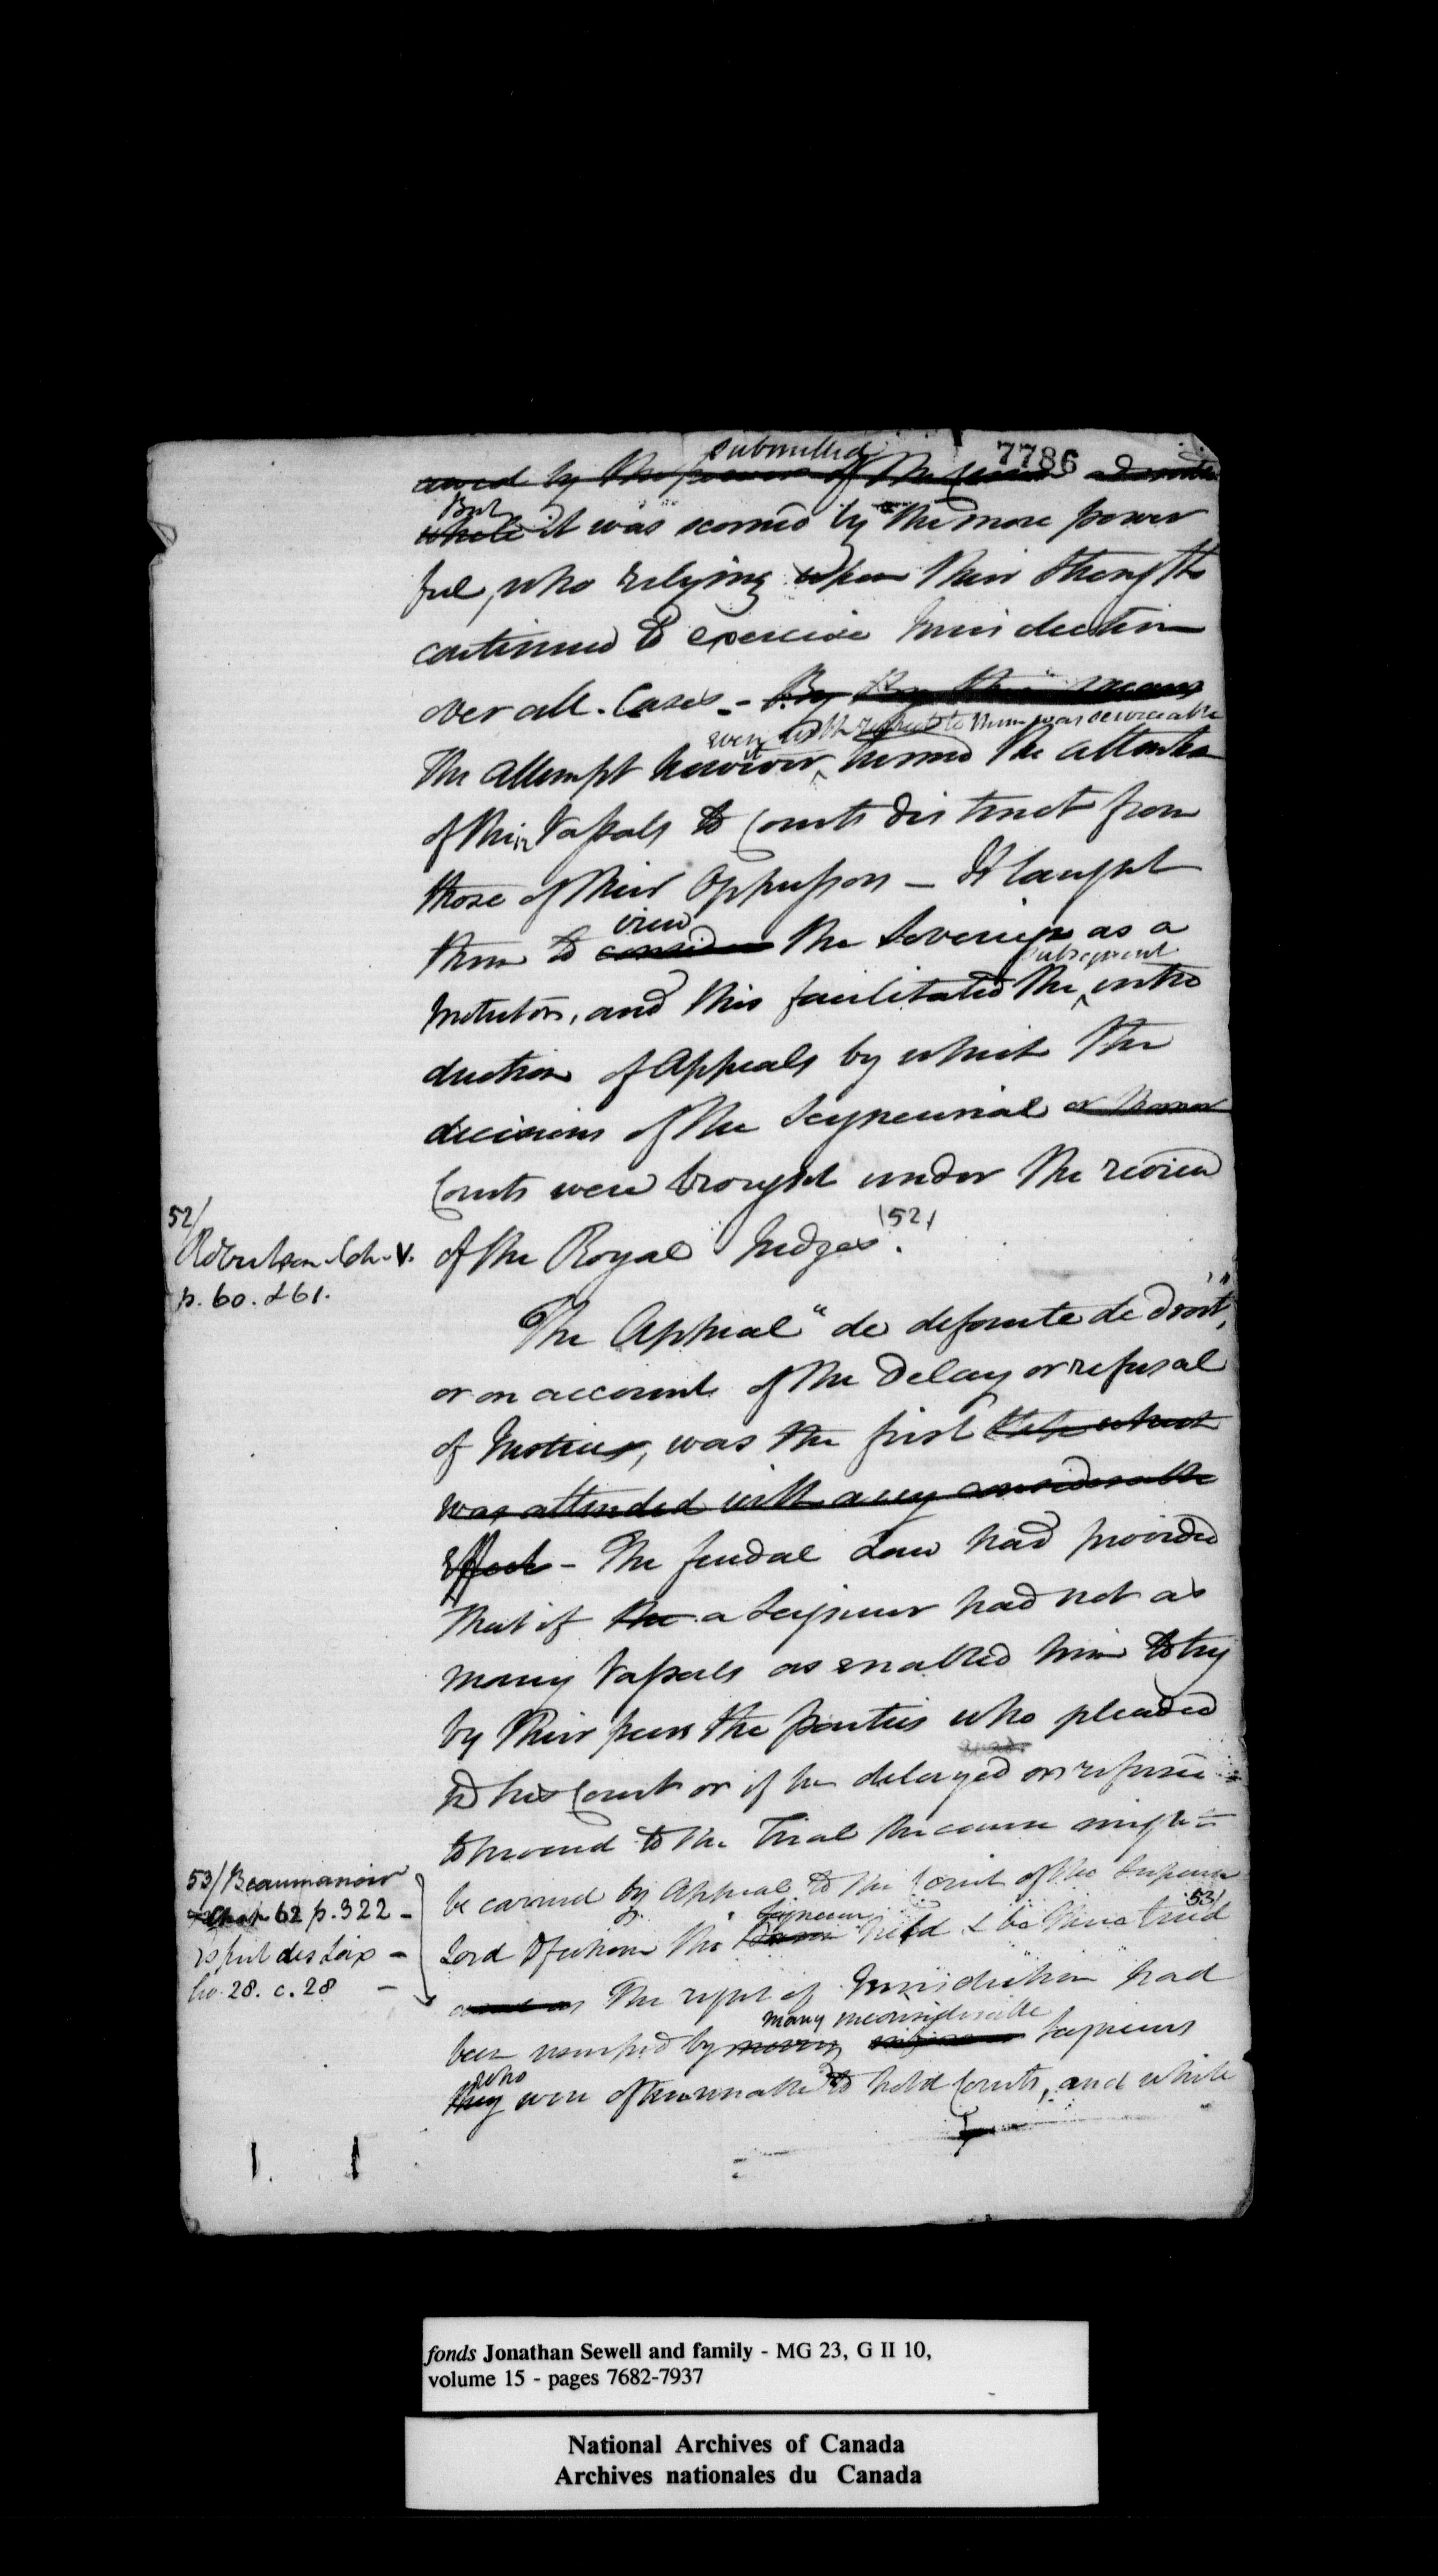 submitted
7786
awed by the power of the Crown admitted
But
while it was scorned by the more power
ful, who relying upon their strength
continued to exercise Jurisdiction
over all Cases. - By this means
even with respect to them was serviceable
The attempt however, it turned the attention
of their Vassals to Courts distinct from
those of their Oppressors - It taught
view
them to consider the Sovereign as a
subsequent
protector, and this facilitated the intro
duction of Appeals by which the
decisions of the Seigneurial or Baron
Courts were brought under the review
of the Royal Judges. (52)
52/
Robertson Ch. V.
p. 60. & 61.
The Appeal "de defaute de droit",
or on account of the Delay or refusal
of Justice, was the first that which
was attended with any considerable
Effect - The feudal Law had provided
that if the a Seigneur had not as
many Vassals as enabled him to try
by their peers the parties who pleaded
in his Court or if he delayed or refused
to proceed to the Trial the cause might
be carried by Appeal to the Court of the Superior
Seigneur
Lord of whom the Baron held & be there tried 53/
53/ Beaumanoir
Chap 62 p. 322 -
Esprit des Loix -
Liv. 28. c. 28 -
The right of Jurisdiction had
many inconsiderable
been usurped by many Seigneurs
who
they were often unable to hold Courts, and while
fonds Jonathan Sewell and family - MG 23, G II 10,
volume 15 - pages 7682-7937
National Archives of Canada
Archives nationales du Canada